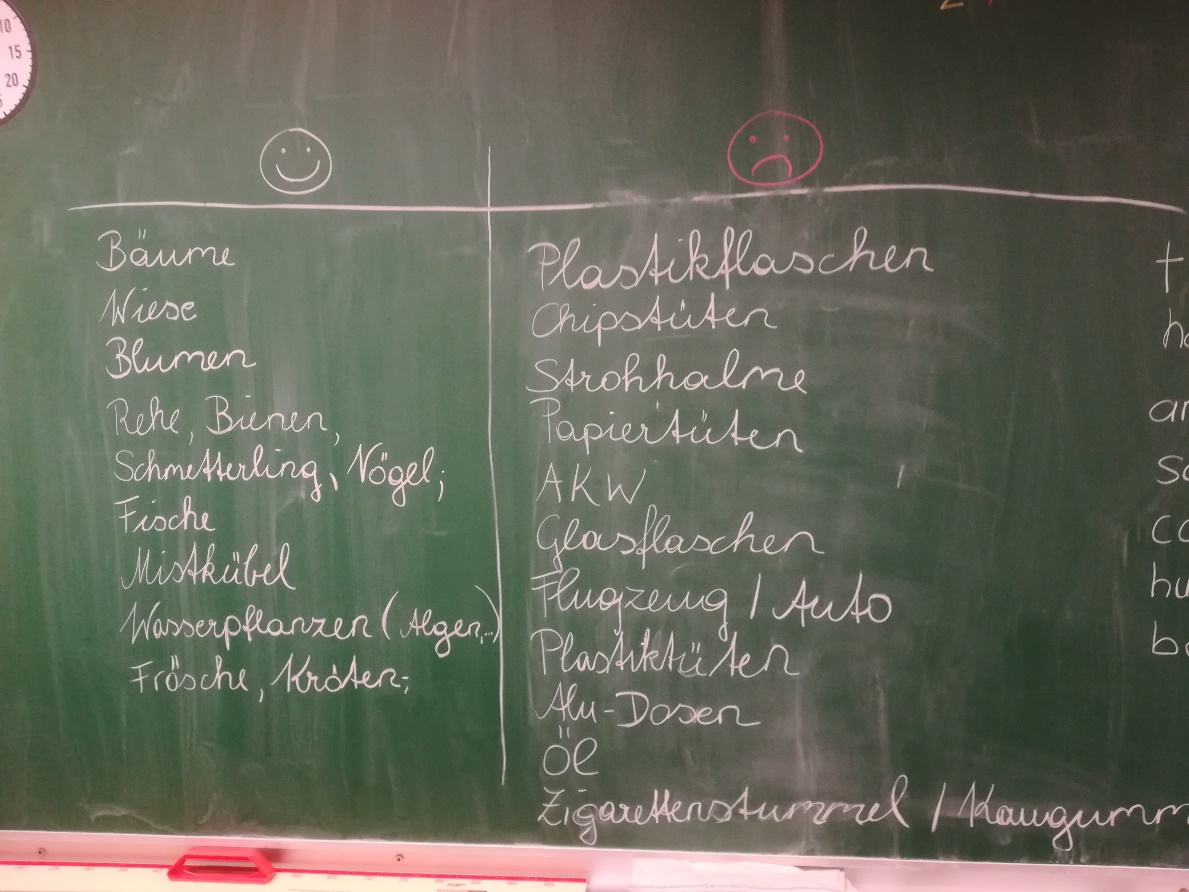 10
15
20
Bäume
Wiese
Blumen
Rehe, Bienen,
Schmetterling, Vögel;
Fische
Mistkübel
Wasserpflanzen (Algen,..)
Frösche, Kröten;
Plastikflaschen
Chipstüten
Strohhalme
Papiertüten
AKW
Glasflaschen
Flugzeug / Auto
Plastiktüten
Alu-Dosen
Öl
Zigarettenstummel / Kaugumm